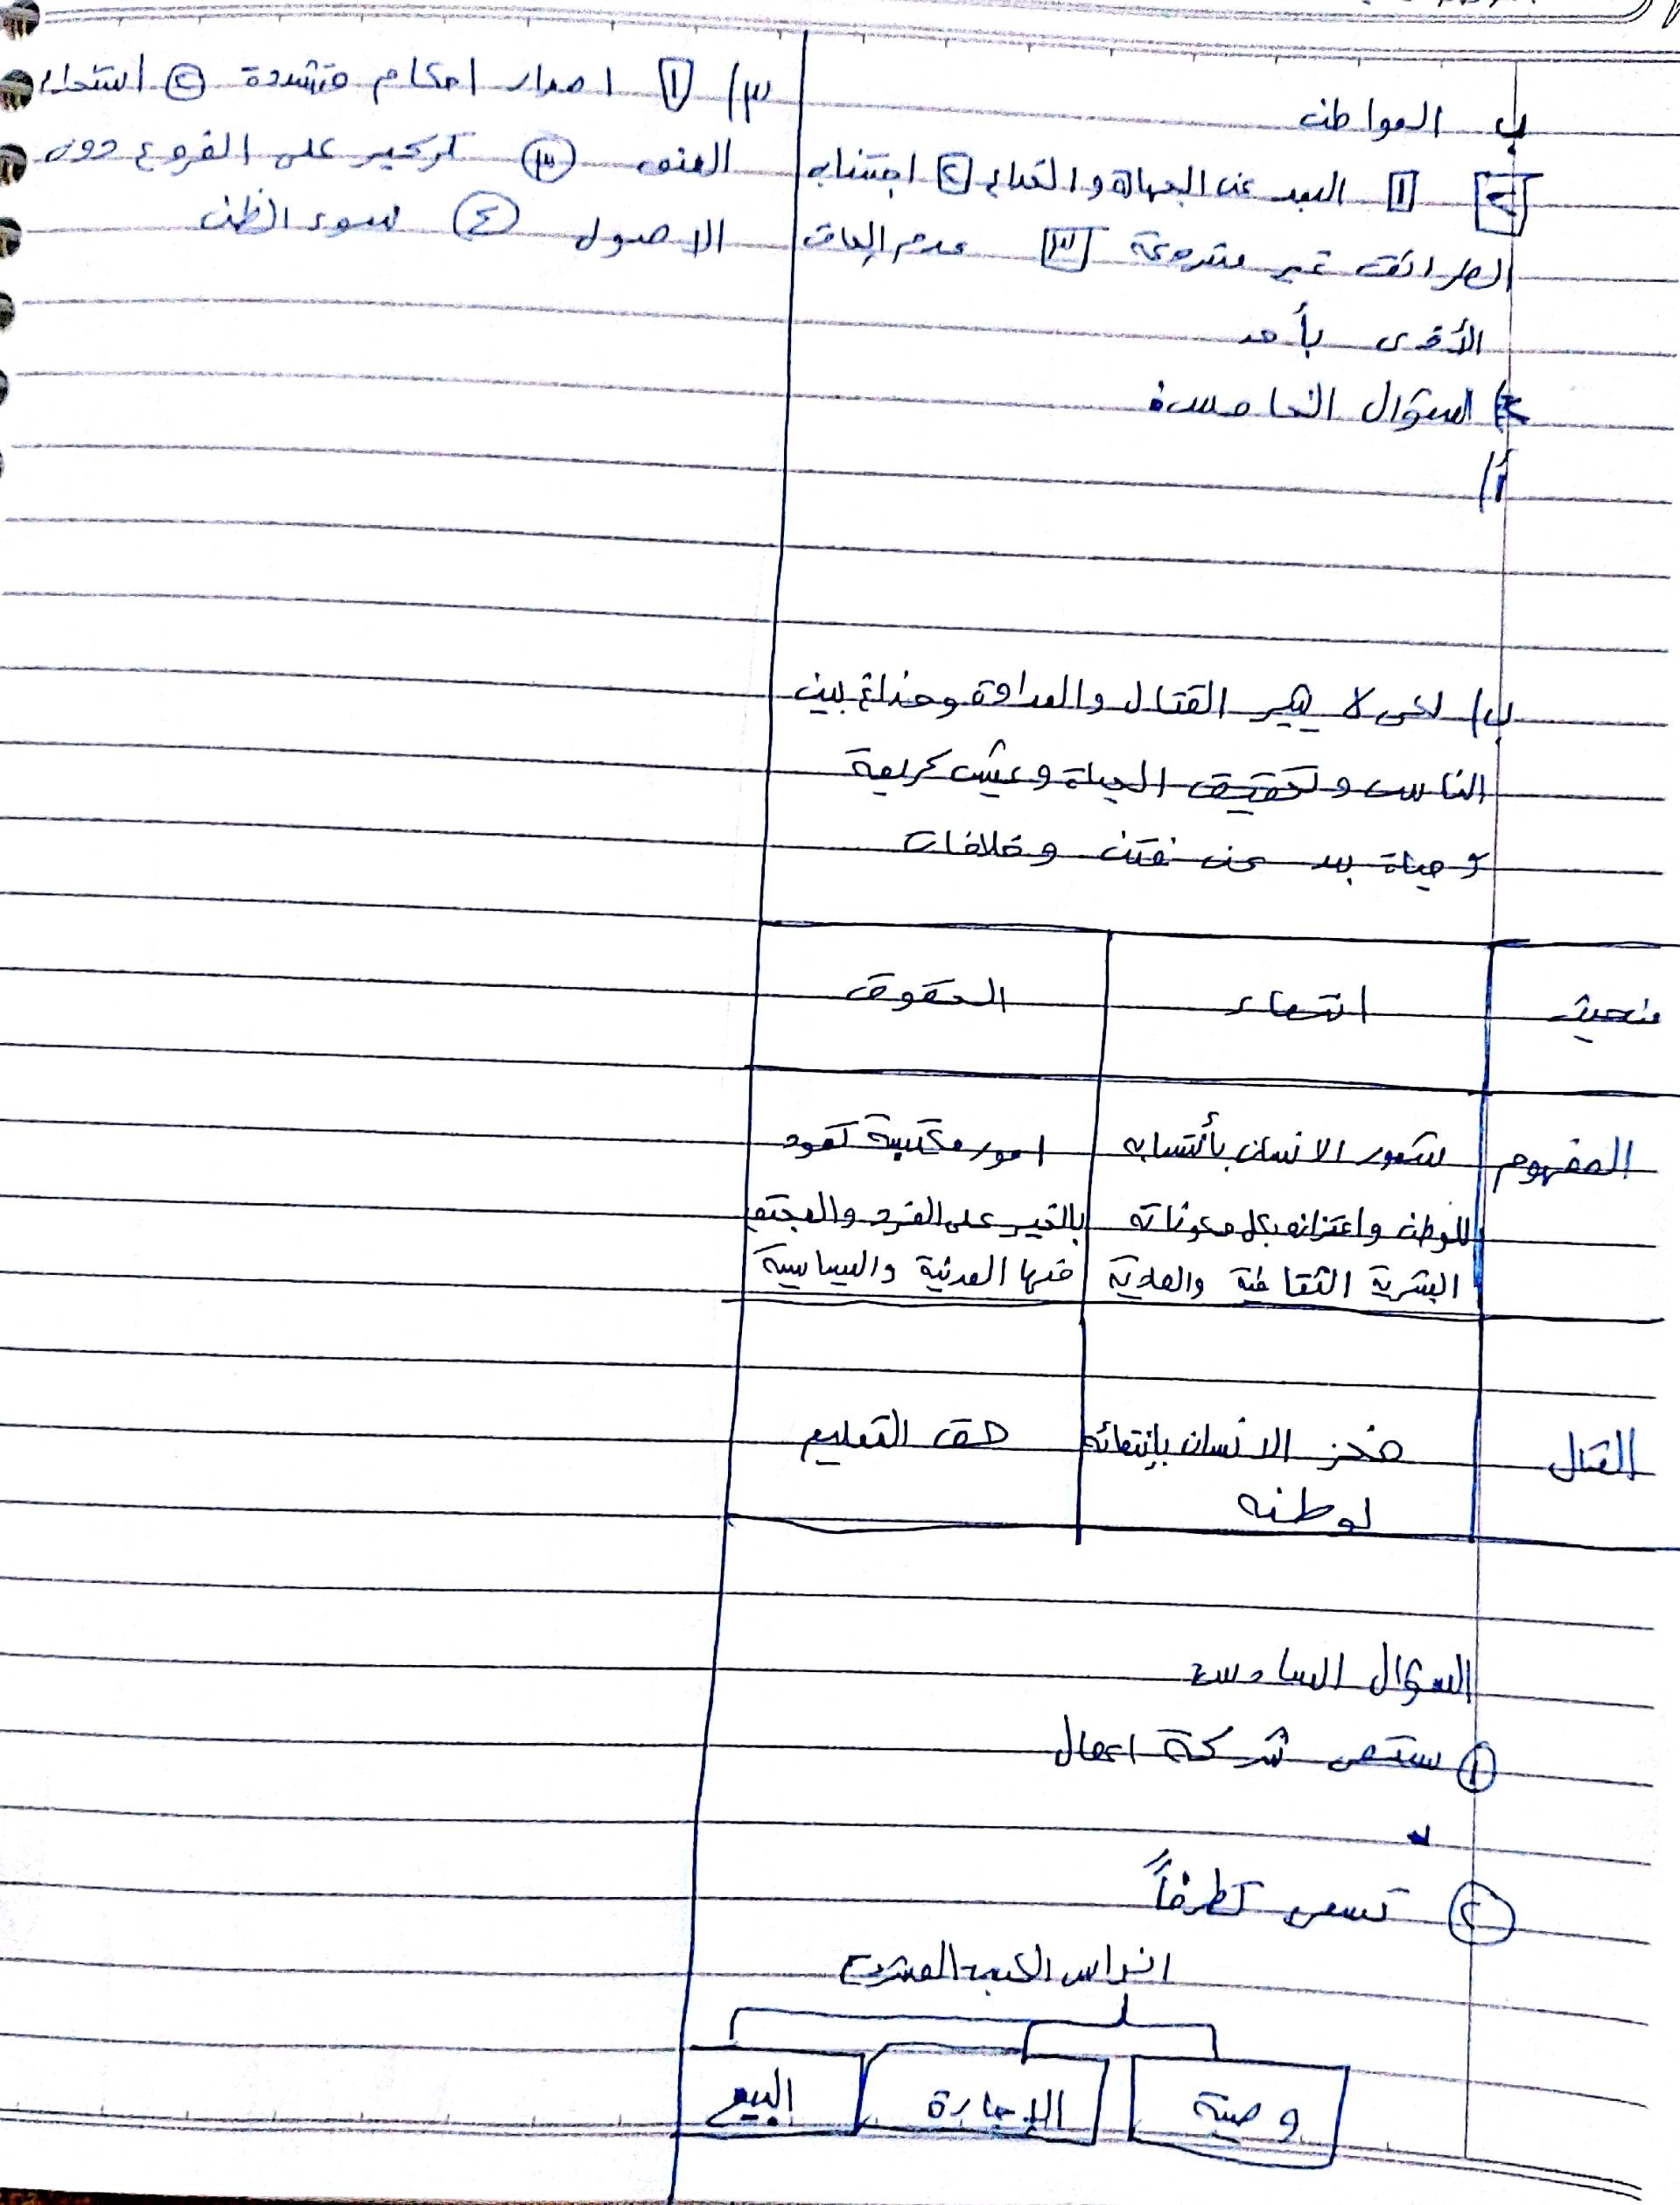 ب المواطن
٢ ١ البعد عن الجهالة والخداع ٢ اجتناب
الطرائق غير مشروعة ٣ عدم إلحاق
الأذى بأحد
السؤال الخامس:
أ/
ب/ لكي لا يثير القتال والعداوة ونزاع بين
الناس و تحقيق الحياة وعيش كريمة
حياة بعد عن فتن وخلافات
منحيث انتماء الحقوق
المفهوم شعور الانسان بأنتسابه امور مكتسبة تعود
للوطن واعتزازه بكل مكوناته بالخير على الفرد والمجتمع
البشرية الثقافية والمادية منها المدنية والسياسية
المثال فخر الانسان بإنتمائه حق التعليم
لوطنه
السؤال السادس
١ ستمى شركة اعمال
٢ تسمى تطرفاً
الكسب المشروع
وصية الإجارة البيع
٣/ ١ اصدار احكام متشددة ٢ استخدام
العنف ٣ تركيز على الفروع دون
الاصول ٤ سوء الظن